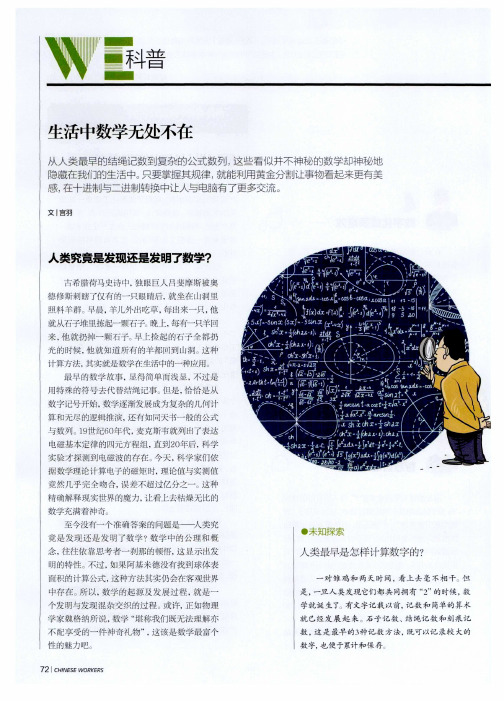 WE科普
生活中数学无处不在
从人类最早的结绳记数到复杂的公式数列,这些看似并不神秘的数学却神秘地
隐藏在我们的生活中。只要掌握其规律,就能利用黄金分割让事物看起来更有美
感,在十进制与二进制转换中让人与电脑有了更多交流。
文 | 宫羽
人类究竟是发现还是发明了数学?
古希腊荷马史诗中,独眼巨人吕斐摩斯被奥
德修斯刺瞎了仅有的一只眼睛后,就坐在山洞里
照料羊群。早晨,羊儿外出吃草,每出来一只,他
就从石子堆里拣起一颗石子。晚上,每有一只羊回
来,他就扔掉一颗石子。早上捡起的石子全部扔
光的时候,他就知道所有的羊都回到山洞。这种
计算方法,其实就是数学在生活中的一种应用。
最早的数学故事,显得简单而浅显,不过是
用特殊的符号去代替结绳记事。但是,恰恰是从
数字记号开始,数学逐渐发展成为复杂的几何计
算和无尽的逻辑推演,还有如同天书一般的公式
与数列。19世纪60年代,麦克斯韦就列出了表达
电磁基本定律的四元方程组,直到20年后,科学
实验才探测到电磁波的存在。今天,科学家们依
据数学理论计算电子的磁矩时,理论值与实测值
竟然几乎完全吻合,误差不超过亿分之一。这种
精确解释现实世界的魔力,让看上去枯燥无比的
数学充满着神奇。
至今没有一个准确答案的问题是——人类究
竟是发现还是发明了数学?数学中的公理和概
念,往往依靠思考者一刹那的顿悟,这显示出发
明的特性。不过,如果阿基米德没有找到球体表
面积的计算公式,这种方法其实仍会在客观世界
中存在。所以,数学的起源及发展过程,就是一
个发明与发现混杂交织的过程。或许,正如物理
学家魏格纳所说,数学“堪称我们既无法理解亦
不配享受的一件神奇礼物”,这该是数学最富个
性的魅力吧。
●未知探索
人类最早是怎样计算数字的?
一对雏鸡和两天时间,看上去毫不相干。但
是,一旦人类发现它们都共同拥有“2”的时候,数
学就诞生了。有文字记载以前,记数和简单的算术
就已经发展起来。石子记数、结绳记数和刻痕记
数,这是最早的3种记数方法,既可以记录较大的
数字,也便于累计和保存。
72 | CHINESE WORKERS